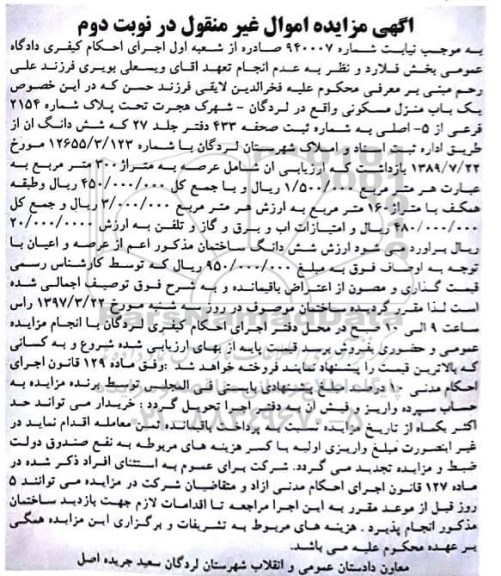 آگهی مزایده اموال غیر منقول در نوبت دوم
به موجب نیابت شماره ۹۴۰۰۰۷ صادره از شعبه اول اجرای احکام کیفری دادگاه
عمومی بخش فلارد و نظر به عدم انجام تعهد آقای ویسعلی بویری فرزند علی
رحم مبنی بر معرفی محکوم علیه فخرالدین لایقی فرزند حسن که در این خصوص
یک باب منزل مسکونی واقع در لردگان - شهرک هجرت تحت پلاک شماره ۲۱۵۴
فرعی از ۵- اصلی به شماره ثبت صفحه ۴۳۳ دفتر جلد ۲۷ که شش دانگ آن از
طریق اداره ثبت اسناد و املاک شهرستان لردگان با شماره ۱۲۶۵۵/۳/۱۲۳ مورخ
۱۳۸۹/۷/۲۲ بازداشت که ارزیابی آن شامل عرصه به متراژ ۳۰۰ متر مربع به
عبارت هر متر مربع ۱/۵۰۰/۰۰۰ ریال و با جمع کل ۴۵۰/۰۰۰/۰۰۰ ریال وطبقه
همکف با متراژ ۱۶۰ متر مربع به ارزش هر متر مربع ۳/۰۰۰/۰۰۰ ریال و جمع کل
۴۸۰/۰۰۰/۰۰۰ ریال و امتیازات آب و برق و گاز و تلفن به ارزش ۲۰/۰۰۰/۰۰۰
ریال برآورد می شود ارزش شش دانگ ساختمان مذکور اعم از عرصه و اعیان با
توجه به اوصاف فوق به مبلغ ۹۵۰/۰۰۰/۰۰۰ ریال که توسط کارشناس رسمی
قیمت گذاری و مصون از اعتراض باقیمانده و به شرح فوق توصیف اجمالی شده
است لذا مقرر گردید ساختمان موصوف در روز سه شنبه مورخ ۱۳۹۷/۳/۲۲ راس
ساعت ۹ الی ۱۰ صبح در محل دفتر اجرای احکام کیفری لردگان با انجام مزایده
عمومی و حضوری بفروش برسد قیمت پایه از بهای ارزیابی شده شروع و به کسانی
که بالاترین قیمت را پیشنهاد نمایند فروخته خواهد شد :وفق ماده ۱۲۹ قانون اجرای
احکام مدنی ۱۰ درصد مبلغ پیشنهادی بایستی فی المجلس توسط برنده مزایده به
حساب سپرده واریز و فیش آن به دفتر اجرا تحویل گردد: خریدار می تواند حد
اکثر یکماه از تاریخ مزایده نسبت به پرداخت باقیمانده ثمن معامله اقدام نماید در
غیر اینصورت مبلغ واریزی اولیه با کسر هزینه های مربوطه به نفع صندوق دولت
ضبط و مزایده تجدید می گردد. شرکت برای عموم به استثنای افراد ذکر شده در
ماده ۱۲۷ قانون اجرای احکام مدنی آزاد و متقاضیان شرکت در مزایده می توانند ۵
روز قبل از موعد مقرر به این اجرا مراجعه تا اقدامات لازم جهت بازدید ساختمان
مذکور انجام پذیرد . هزینه های مربوط به تشریفات و برگزاری این مزایده همگی
بر عهده محکوم علیه می باشد.
معاون دادستان عمومی و انقلاب شهرستان لردگان سعید جریده اصل